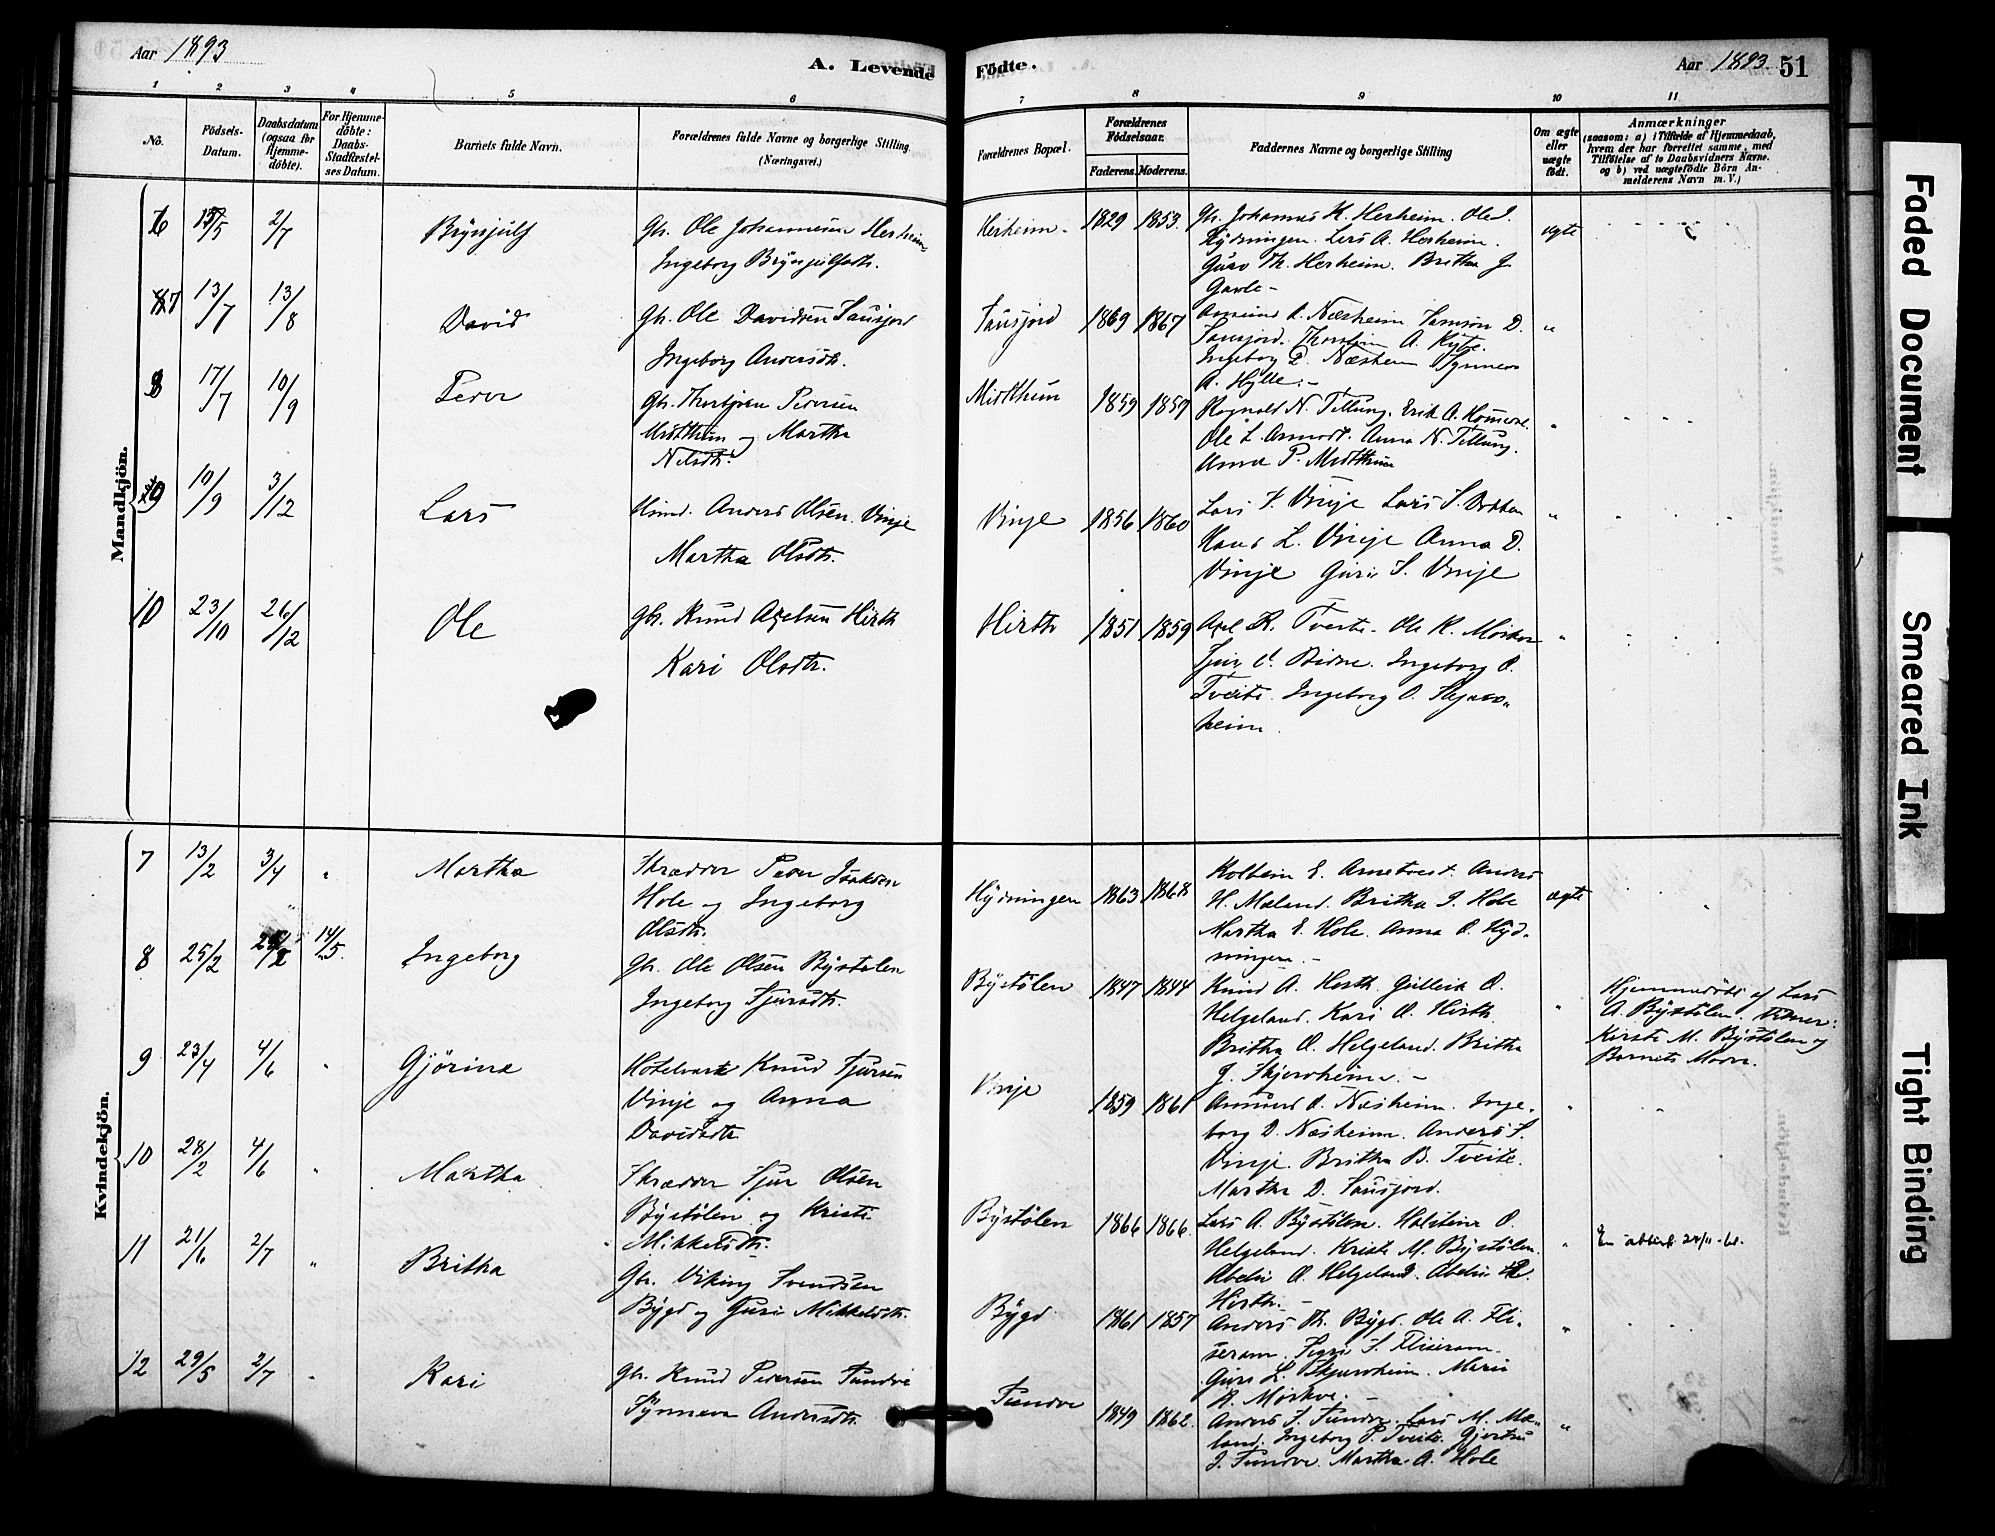 Aar 1893
A. Levende Födte.
Aar 1893. 51
1 2 3 4 5 6 7 8 9 10 11
No.
Födsels-Datum.
Daabsdatum (ogsaa for Hjemme-döbte).
For Hjemme-döbte: Daabs-Stadfæstel-ses Datum.
Barnets fulde Navn.
Forældrenes fulde Navne og borgerlige Stilling (Næringsvei.)
Forældrenes Bopæl.
Forældrenes Födselsaar.
Faderens. Moderens.
Faddernes Navne og borgerlige Stilling
Om ægte eller uægte födt.
Anmærkninger
(saasom: a) i Tilfælde af Hjemmedaab, hvem der har forrettet samme, med Tilföielse af to Daabsvidners Navne. og b) ved uægtefödte Börn An-melderens Navn m. V.)
Mandkjön.
6 2/7 Brynjulf Gbr. Ole Johannesen Herheim
Ingeborg Brynjulfsdtr.
Herheim 1829 1853. Gbr. Johannes K. Herheim. Ole I.
Hydningen. Lars A. Herheim.
Guro Th. Herheim. Britha J.
Gavle -
ægte
7 13/7 13/8 David Gbr. Ole Davidsen Sausjord
Ingeborg Andersdtr.
Sausjord 1869 1867 Amund A. Næsheim Samson D.
Sausjord. Thorstein A. Kyte.
Ingeborg D. Næsheim Synneva
A. Hylle. -
"
8 17/7 10/9 Peder Gbr. Thorbjørn Pedersen
Midtthun og Martha
Nilsdtr.
Midtthun 1859 1859 Rognald N. Tillung. Erik A.
Ole L. Anna N. Tillung.
Anna P. Midtthun
"
9 10/9 3/12 Lars Huusmd. Anders Olsen Vinje
Martha Olsdtr.
Vinje 1856 1860 Lars Vinje Lars S. Dokken
Knud L. Vinje Anna D.
Vinje Guri S. Vinje
"
10 23/10 26/12 Ole Gbr. Knud Axelsen Hirth
Kari Olsdtr.
Hirth 1851 1859 Axel K. Tveite. Ole K. Mörkve
Sjur Bidne. Ingeborg O.
Tveite. Ingeborg O. Skjerv-
heim.
"
Kvindekjön.
7 13/2 3/4 " Martha Skræder Peder Isaksen
Hole og Ingeborg
Olsdtr.
Hydningen 1863 1868 Kolbein E. Annetvedt. Anders
H. Mæland. Britha I. Hole
Martha E. Hole. Anna O. Hyd-
ningen. -
ægte
8 25/2 14/5. Ingeborg Gbr. Ole Olsen Bystølen
Ingeborg Sjursdtr.
Bystølen 1847 1844 Knud A. Hirth. Gullik O.
Helgeland. Kari O. Hirth.
Britha O. Helgeland. Britha
J. Skjervheim. -
" Hjemmedøbt af Lars
A. Bystølen. Vidner:
Kirsti M. Bystølen og
Barnets Moder.
9 23/4 4/6 " Gjörine Hotelvært Knud Sjursen
Vinje og Anna
Davidsdtr.
Vinje 1859 1861 Amund A. Næsheim. Inge-
borg D. Næsheim. Anders S.
Vinje. Britha B. Tveite.
Martha D. Sausjord.
"
10 28/2 4/6 " Martha Skræder Sjur Olsen
Bystølen og Kristi
Mikkelsdtr.
Bystølen 1866 1866. Lars A. Bystølen. Halstein O.
Helgeland. Kristi M. Bystølen.
Abelin O. Helgeland. Abelin
Hirth. -
" En attest 24/11-61.
11 21/6 2/7 " Britha Gbr. Viking Svendsen
Bygd og Guri Mikkelsdtr.
Bygd 1861 1857 Anders Th. Bygd. Ole A. Fli-
seram. Sigri S. Fliseram.
Guri L. Skjervheim. Mari
A. Mörkve. -
"
12 29/5 2/7 " Kari Gbr. Knud Pedersen Fundve
Synneva Andersdtr.
Fundve 1849 1862. Anders I. Fundve. Lars M. Mæ-
land. Ingeborg P. Tveite. Gjertru
I. Fundve. Martha A. Hole
"
Faded Document
Smeared Ink
Tight Binding